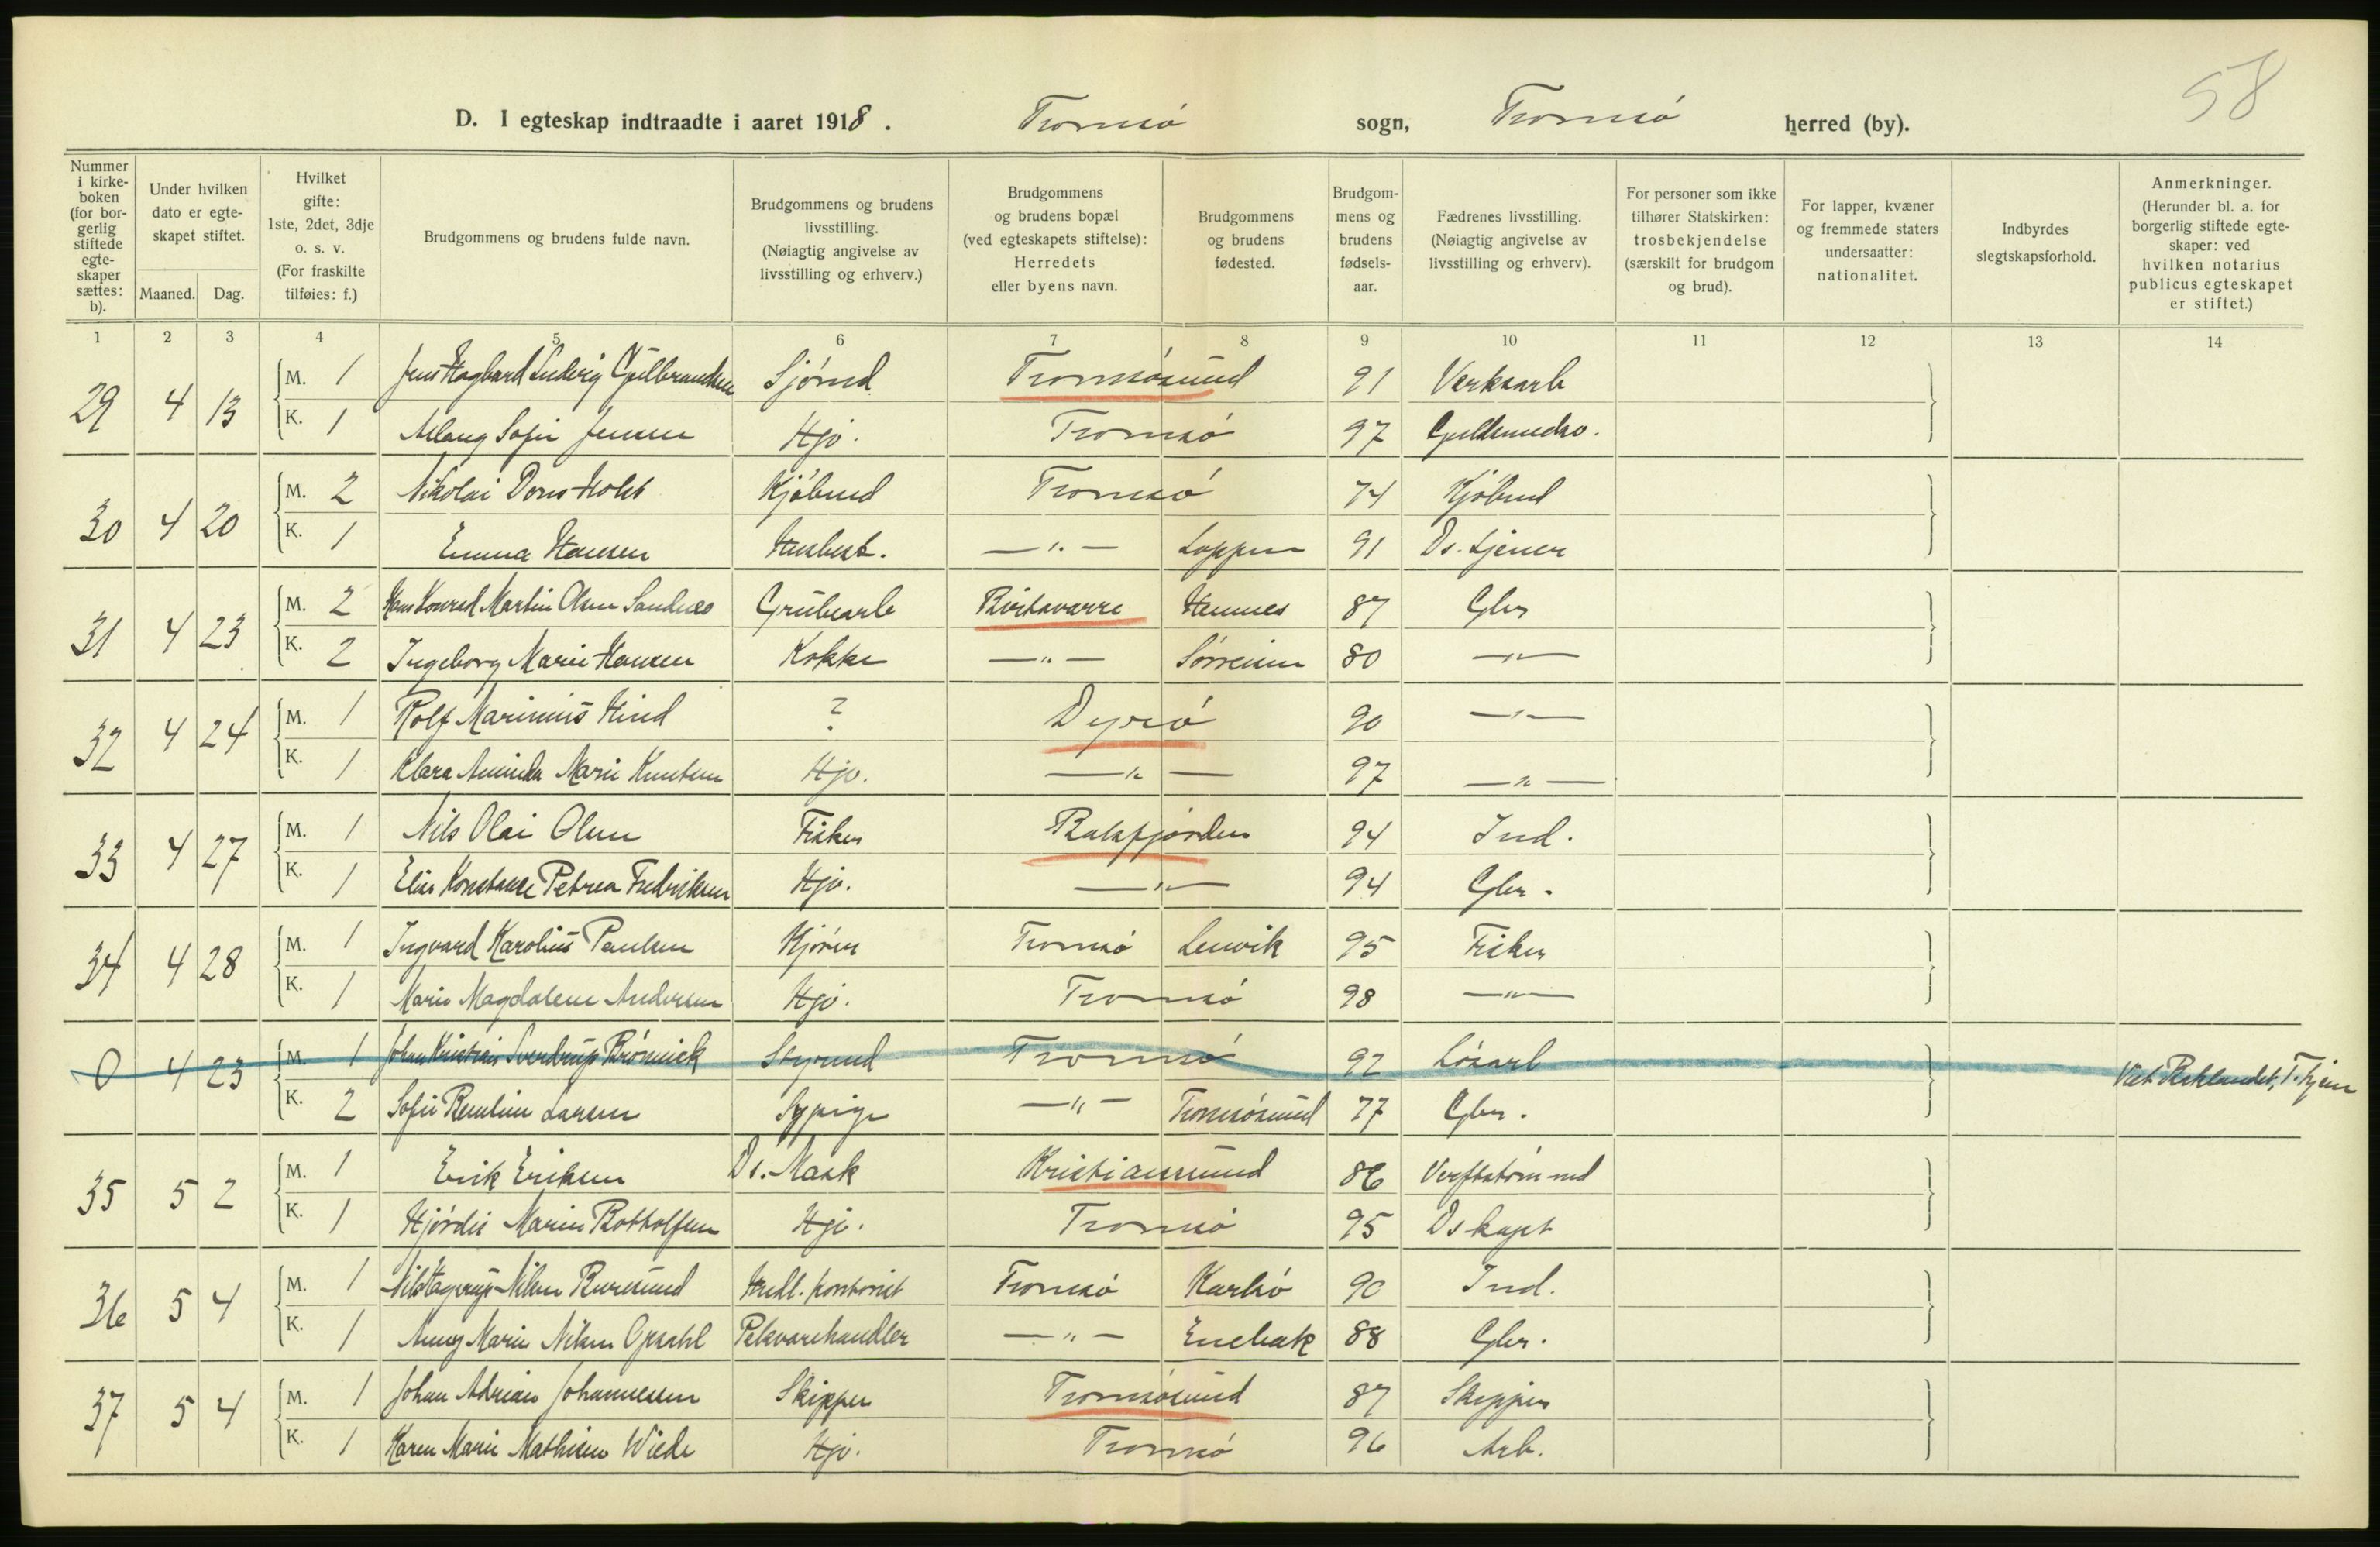 58
D. I egteskap indtraadte i aaret 1918. Tromsø sogn, Tromsø herred (by).
Nummer i kirkeboken (for borgerlig stiftede egteskaper sættes: b).
Under hvilken dato er egteskapet stiftet.
Maaned. Dag.
Hvilket gifte: 1ste, 2det, 3dje o. s. v. (For fraskilte tilføies: f.)
Brudgommens og brudens fulde navn.
Brudgommens og brudens livsstilling. (Nøiagtig angivelse av livsstilling og erhverv.)
Brudgommens og brudens bopæl (ved egteskapets stiftelse): Herredets eller byens navn.
Brudgommens og brudens fødested.
Brudgommens og brudens fødselsaar.
Fædrenes livsstilling. (Nøiagtig angivelse av livsstilling og erhverv).
For personer som ikke tilhører Statskirken: trosbekjendelse (særskilt for brudgom og brud).
For lapper, kvæner og fremmede staters undersaatter: nationalitet.
Indbyrdes slegtskapsforhold.
Anmerkninger. (Herunder bl. a. for borgerlig stiftede egteskaper: ved hvilken notarius publicus egteskapet er stiftet.)
1 2 3 4 5 6 7 8 9 10 11 12 13 14
29 4 13 M. 1 Jens Hagbard Ludvig Gulbrandsen Sjømd Tromsøsund 91 Verksarb
K. 1 Aslaug Sofie Jensen Hjv. Tromsø 97 Guldsmedsv.
30 4 20 M. 2 Nikolai Dons Holst Kjøbmd Tromsø 74 Kjøbmd
K. 1 Emma Hansen Husbest. —"— Loppen 91 Ds. tjener
31 4 23 M. 2 Hans Konrad Martin Olsen Sandnes Grubearb Birtavarre Hennes 87 Gbr
K. 2 Ingeborg Marie Hansen Kokke —"— Sørreisen 80 —"—
32 4 24 M. 1 Rolf Marinius Hind ? Dyrø 90 —"—
K. 1 Klara Marie Knutsen Hjv. —"— 97 —"—
33 4 27 M. 1 Nils Olai Olsen Fisker Balsfjorden 94 Ind.
K. 1 Elise Konstanse Petrea Fredriksen Hjv. —"— 94 Gbr.
34 4 28 M. 1 Ingvard Karolius Paulsen Kjører Tromsø Lenvik 95 Fisker
K. 1 Marie Magdalene Andersen Hjv. Tromsø 98 —"—
0 4 23 M. 1 Johan Kristian Sverdrup Brønvick Styrmd Tromsø 92 Løsarb
K. 2 Sofie Larsen Sypige —"— Tromsøsund 77 Gbr.
35 5 2 M. 1 Erik Eriksen Ds. Mask Kristiansund 86
K. 1 Hjørdis Marie Botholfsen Hjv. Tromsø 95 Dskapt
36 5 4 M. 1 Nils Hagerup Nilsen Buresund Hndl. kontorist Tromsø Karlsø 90 Ind.
K. 1 Anny Marie Nilsen Opsahl Pelsvarehandler —"— Enebak 88 Gbr.
37 5 4 M. 1 Johan Adrian Johannessen Skipper Tromsøsund 87 Skipper
K. 1 Karen Marie Mathisen Wiede Hjv. Tromsø 96 Arb.